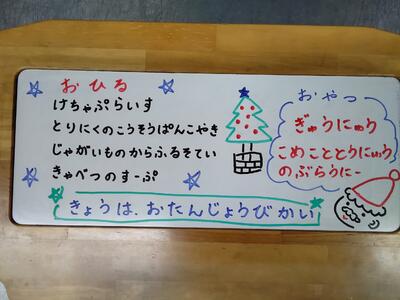 おひる
けちゃぷらいす
とりにくのこうそうぱんこやき
じゃがいものからふるそてい
きゃべつのすーぷ
おやつ
ぎゅうにゅう
こめこととうにゅう
のぶらうにー
きょうは、おたんじょうびかい